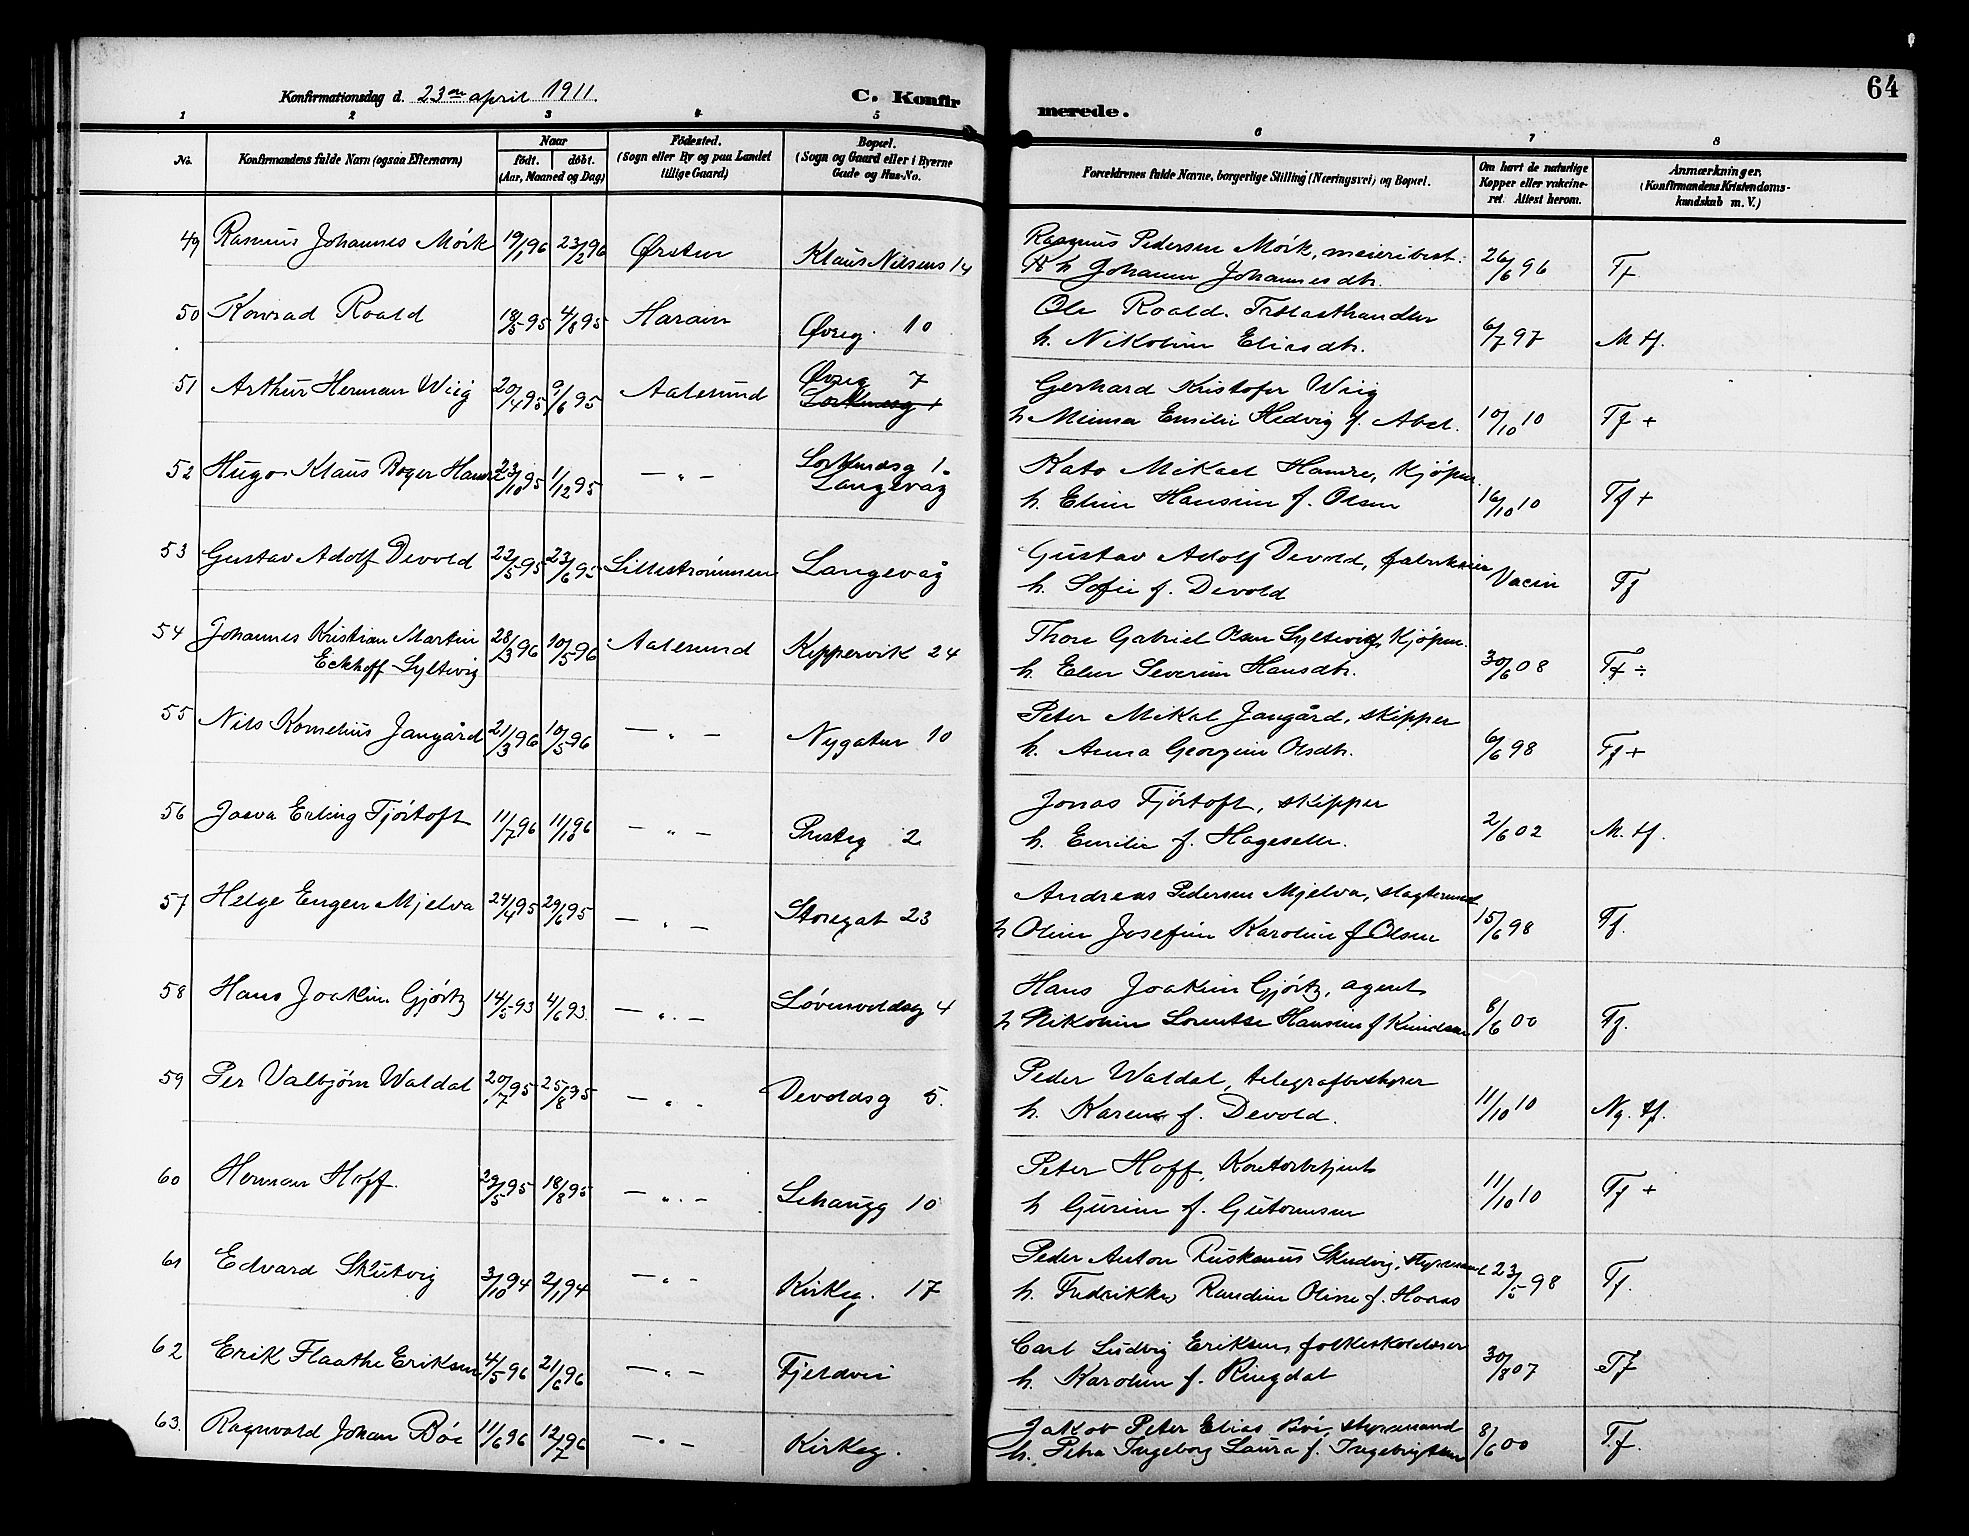 64
Konfirmationsdag d. 23de april 1911.
C. Konfirmerede.
1 2 3 4 5 6 7 8
No.
Konfirmandens fulde Navn (ogsaa Efternavn)
Naar
født. døbt.
(Aar, Maaned og Dag)
Fødested.
(Sogn eller By og paa Landet
tillige Gaard)
Bopæl.
(Sogn og Gaard eller i Byerne
Gade og Hus-No.
Forældrenes fulde Navne, borgerlige Stilling (Næringsvei) og Bopæl.
Om havt de naturlige
Kopper eller vakcine-
ret. Attest herom.
Anmærkninger.
(Konfirmandens Kristendoms-
kundskab m. V.)
49 Rasmus Johannes Mørk 19/1 96 23/2 96 Ørsten Klaus Nilsens 14
Rasmus Pedersen Mørk, meieribest.
h. Johanne Johannesdtr. 26/6 96 Tf
50 Konrad Roald 18/5 95 4/8 95 Haram Øvreg. 10
Ole Roald. Trælasthandler
h. Nikoline Eliasdtr. 6/7 97 M tf.
51 Arthur Herman Wiig 20/4 95 9/6 95 Aalesund Øvreg 7
Gerhard Kristofer Wiig
h Minna Emilie Hedvig f. Abel. 10/10 10 Tf +
52 Hugo Klaus Roger Hamre 23/10 95 1/12 95 — " — Lorkenesg 1.
Langevåg
Kato Mikael Hamre, Kjøpm.
h. Eline Hansine f. Olsen 16/10 10 Tf +
53 Gustav Adolf Devold 22/5 95 23/6 95 Lillestrømmen Langevåg
Gustav Adolf Devold, fabrikeier
h. Sofie f. Devold Vacin Tf
54 Johannes Kristian Martin
Eckhoff Syltevig 28/3 96 10/5 96 Aalesund Kippervik 24
Thore Gabriel Olsen Syltevig, Kjøpm.
h. Elen Severine Hansdtr. 30/6 08 Tf ÷
55 Nils Kornelius Jangård 21/3 96 10/5 96 — " — Nygaten 10
Peter Mikal Jangård, skipper
h. Anna Georgine Olsdtr. 6/6 98 Tf +
56 Joeva Erling Fjørtoft 11/7 96 11/10 96 — " — Presteg 2
Jonas Fjørtoft, skipper
h. Emilie f. Hageseter. 2/6 02 M. tf.
57 Helge Eugen Mjelva 24/4 95 29/6 95 — " — Storegat 23
Andreas Pedersen Mjelva, slagtermest
h Oline Josefine Karoline f Olsen 15/6 98 Tf.
58 Hans Joakim Gjørtz 14/5 93 4/6 93. — " — Løvenvoldsg 4
Hans Joakim Gjørtz, agent
h Nikoline Lorentse Hansine f Knudsen 8/6 00 Tf.
59 Per Valbjørn Waldal 20/7 95 25/8 95 — " — Devoldsg 5.
Peder Waldal, telegrafbestyrer
h. Karen f. Devold. 11/10 10 Ng. tf.
60 Herman Hoff. 29/5 95 18/8 95 — " — Lihaugg 10
Peter Hoff, Kontorbetjent
h Gurine f. Guttormsen 11/10 10 Tf +
61 Edvard Skutvig 3/10 94 2/1 94 — " — Kirkeg. 17
Peder Anton Ruskanus Skudvig, styrmand
h. Fredrikke Randine Oline f. Hoaas 23/5 98 Tf.
62 Erik Flaathe Eriksen 4/5 96 21/6 96 — " — Fjeldvei
Carl Ludvig Eriksen, folkeskolelærer
h. Karoline f. Ringdal 30/8 07 Tf
63. Ragnvald Johan Bøe 11/6 96 12/7 96 — " — Kirkeg.
Jakob Peter Elias Bøe, styrmand
h. Petra Ingeborg Laura f. Ingebrigtsen 8/6 00 T.f.